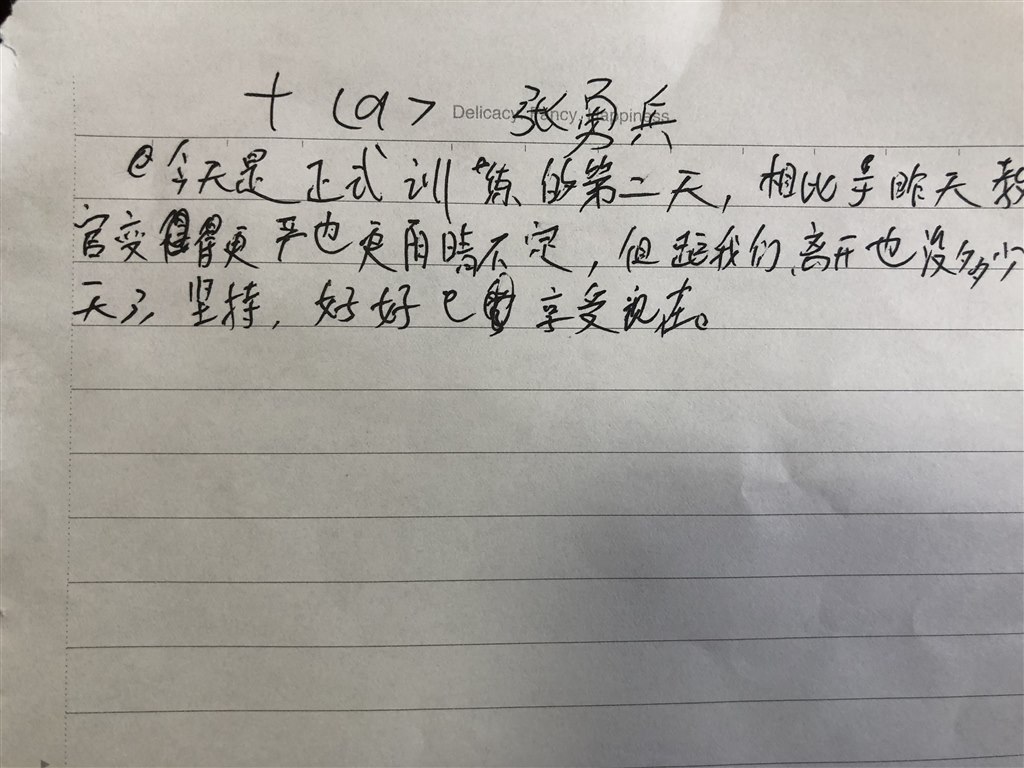 十（a） 张勇兵
Delicacy, Fancy, Happiness
今天是正式训练的第二天，相比于昨天教
官变得更严也更阴晴不定，但距我们离开也没多少
天了，坚持，好好享受现在。